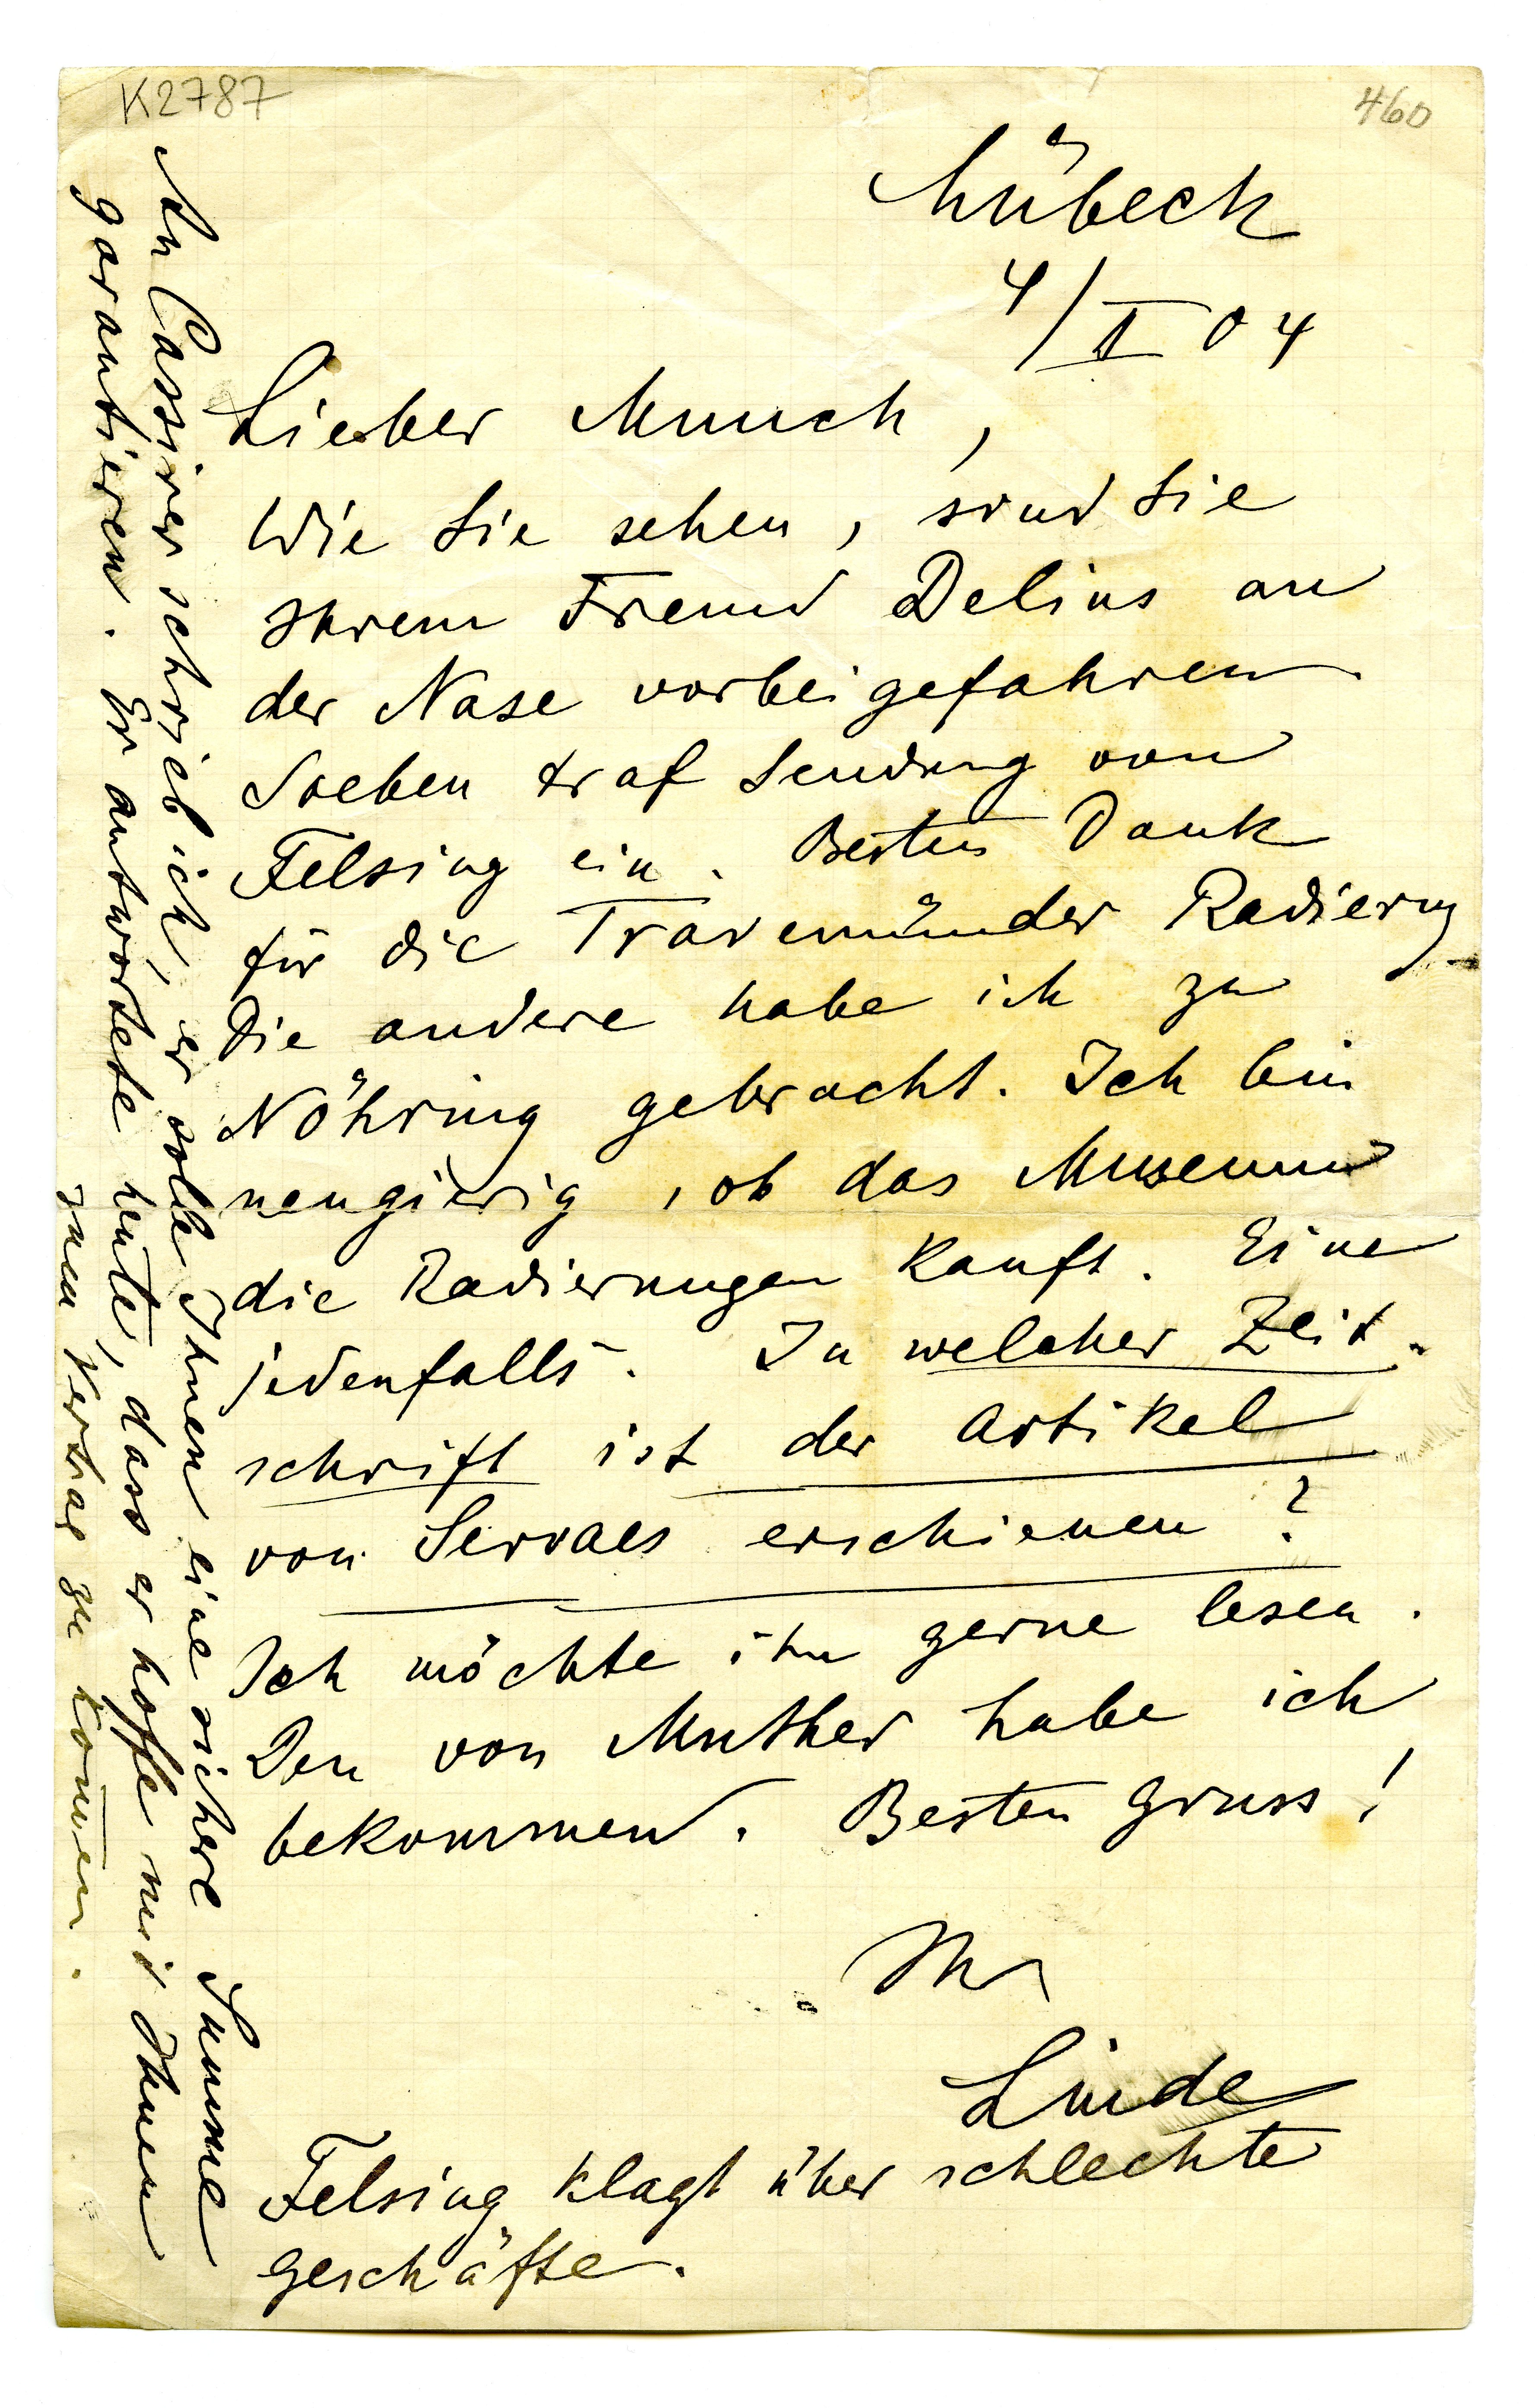 K2787
460
Lübeck
4/II 04
Lieber Munch,
Wie Sie sehen, sind Sie
Ihrem Freund Delius an
der Nase vorbeigefahren
Soeben traf Sendung von
Felsing ein. Besten Dank
für die Travemünder Radierung
Die andere habe ich zu
Nöhring gebracht. Ich bin
neugierig, ob das Museum
die Radierungen kauft. Eine
jedenfalls. In welcher Zeit-
schrift ist der Artikel
von Servaes erschienen?
Ich möchte ihn gerne lesen.
Den von Muther habe ich
bekommen. Besten Gruss!
Ihr
Linde
Felsing klagt über schlechte
Geschäfte.
An Cassirer schrieb ich, er solle Ihnen eine sichere Summe
garantieren. Er antwortete heute, dass er hoffe mit Ihnen
zum Vertrag zu kommen.